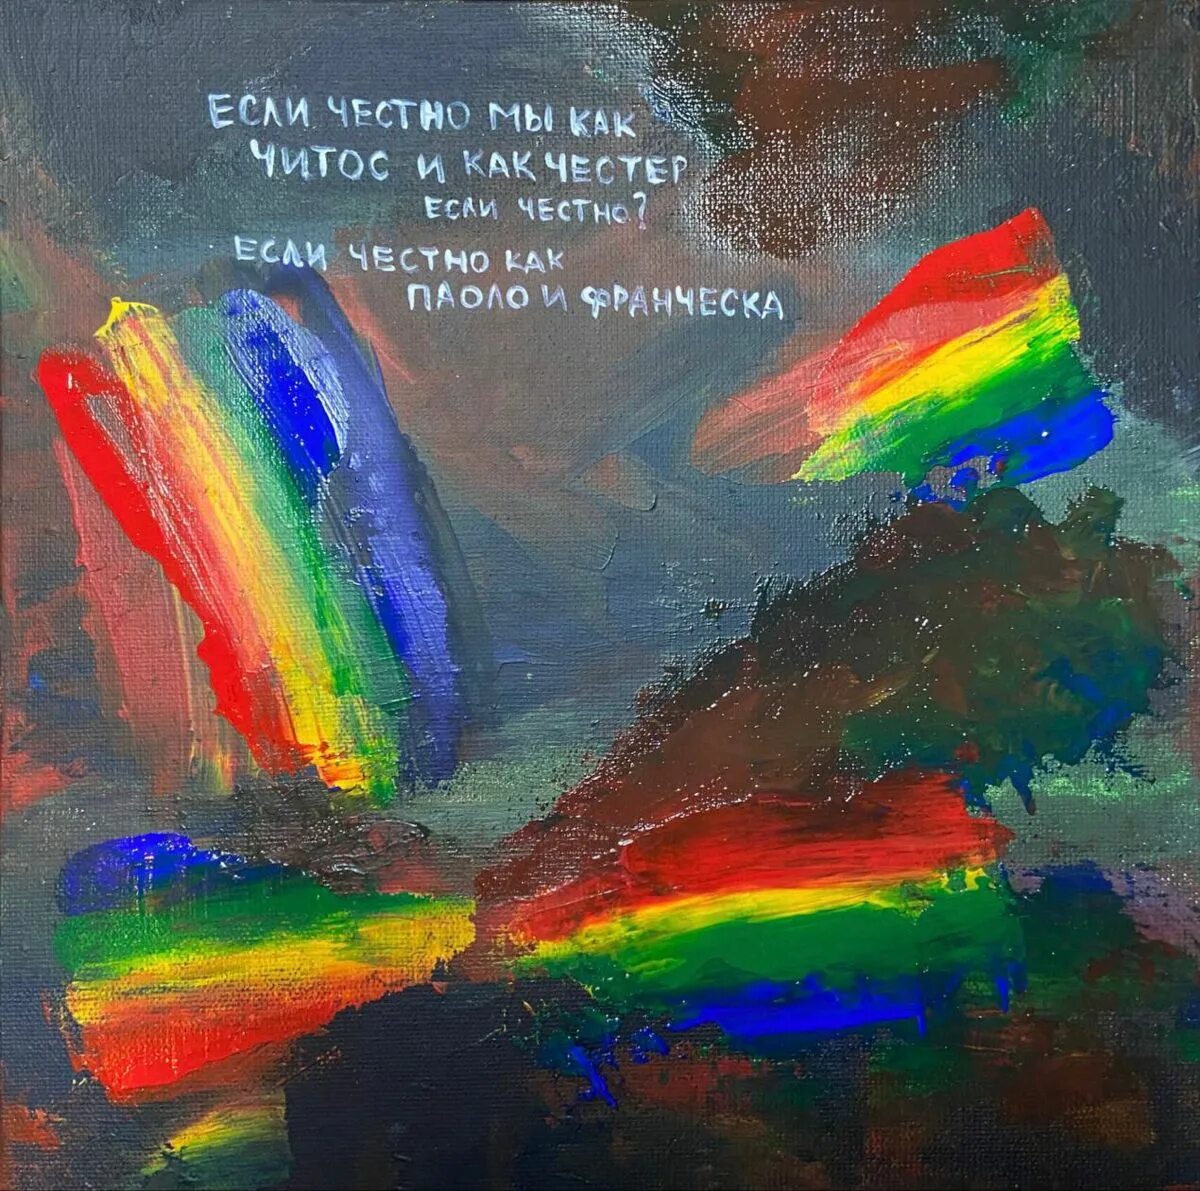 ЕСЛИ ЧЕСТНО МЫ КАК
ЧИТОС И КАК ЧЕСТЕР
ЕСЛИ ЧЕСТНО?
ЕСЛИ ЧЕСТНО КАК
ПАОЛО И ФРАНЧЕСКА